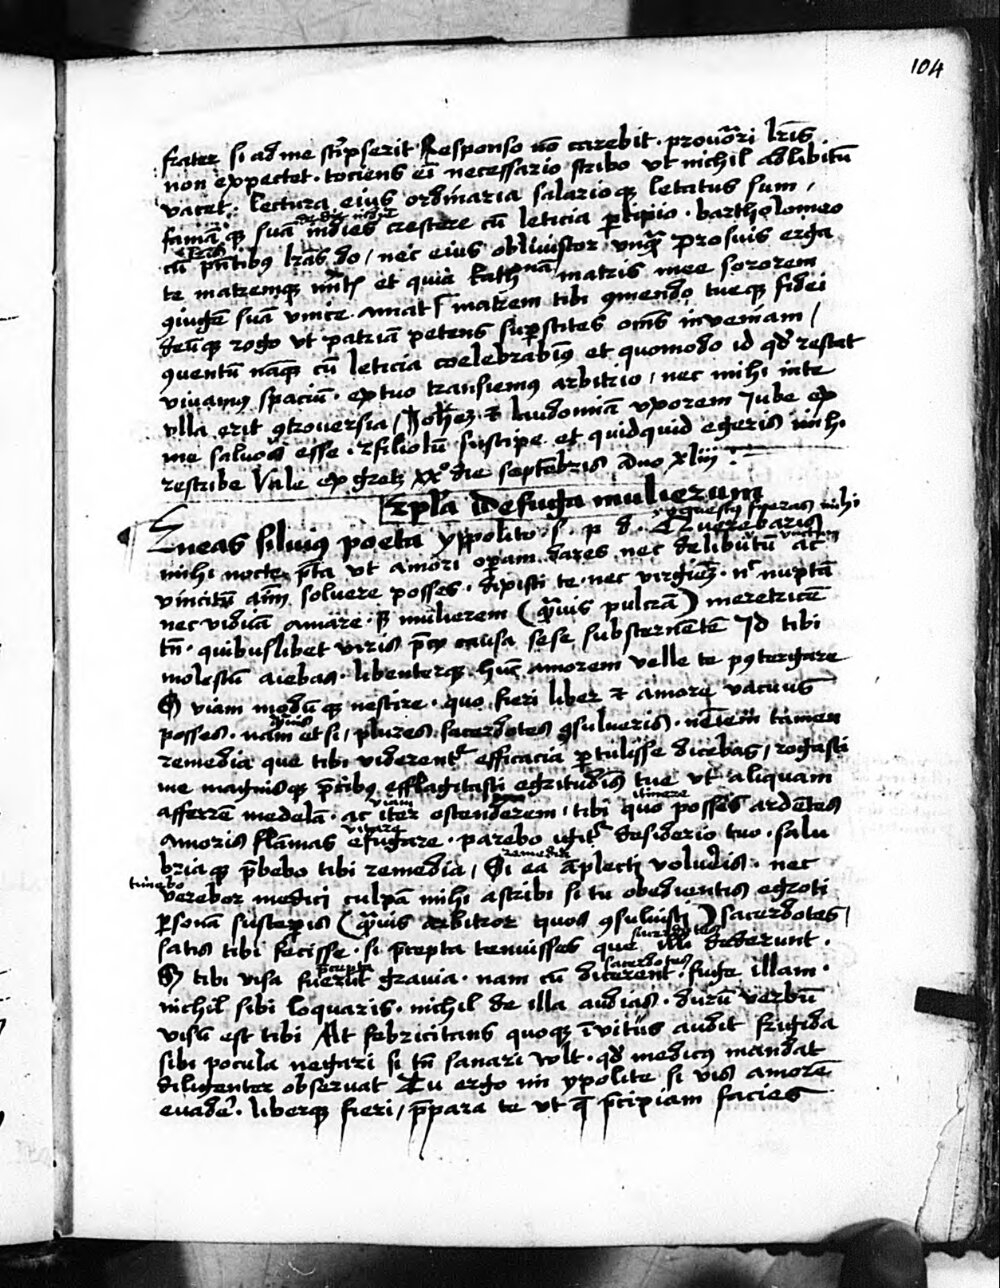 104
frater si ad me scripserit Responso nō carebit · lr̄is
non expectet · tociens ei necessario scribo ut nichil ad libitū
vacet · lectura eius ordinaria salarioqꝫ letatus sum /
famāqꝫ suā indies crescere cū leticia p̱cipio · bartholomeo
cū p̄ntibus lr̄as do / nec eius obliuiscor unqꝫ pro suis erga
te matremqꝫ et quia matris mee sororem
ꝯiugē suā vnice amat matrem tibi ꝯmendo tueqꝫ fidei
deūqꝫ rogo ut patriā petens sup̱stites om̄s inveniam /
ꝯuentū nāqꝫ cū leticia coelebrabimꝰ et quomodo id qđ restat
viuamꝰ spaciū · ex tuo transiemꝰ arbitrio / nec mihi inte
vlla erit ꝯtrouersia / Joh̄em et laudomiā vxorem Jube ex
me saluos esse · filiolū suscipe et quidquid egeris mihi
rescribe Vale ex gretz xxᵒ die septēbris Año xliii
Epl̄a De fuga mulierum
Eneas siluiꝰ poeta yppolito · s · p · d · Querebaris
mihi nocte p̄ta ut amori operam dares nec delibutū ac
vincitū aīm soluere posses · dixisti te · nec virginē · nᶜ nuptā
nec viduā amare · sꝫ mulierem (quāuis pulcrā) meretricē
tn̄ · quibuslibet viris p̄cij causa sese substernētē Id tibi
molestū aiebas · libenterqꝫ hūc amorem velle te postergare
Sꝫ viam modūqꝫ nescire · quo fieri liber et amore vacuus
posses · nam etsi / plures · sacerdotes ꝯsulueris · neīem tamen
remedia que tibi viderent᷑ efficacia p̱tulisse dicebas / rogasti
me magnisqꝫ p̄cibꝰ efflagitasti egritudīs tue ut aliquam
afferrē medelā · ac iter ostenderem / tibi quo posses ardētes
amoris flāmas effugare · parebo igit᷑ desiderio tuo · salu
briaqꝫ p̄bebo tibi remedia / Si ea āplecti volueris · nec
verebor medici culpā mihi ascribi si tu obedientis egroti
p̱sonā susceperis (quāuis arbitror quos ꝯsuluisti) sacerdotes /
satis tibi fecisse · si p̄cepta tenuisses que illi dederunt ·
Sꝫ tibi visa fuerūt gravia · nam cū dicerent · fuge illam ·
nichil sibi loquaris · nichil de illa audias · durū verbū
visū est tibi At febricitans quoqꝫ īvitus audit frigida
sibi pocula negari si tn̄ sanari wlt · qđ medicꝰ mandat
diligenter observat Tu ergo mi ypolite si vis amorē
evadere · liberqꝫ fieri / p̄para te ut q̄ p̄cipiam facies